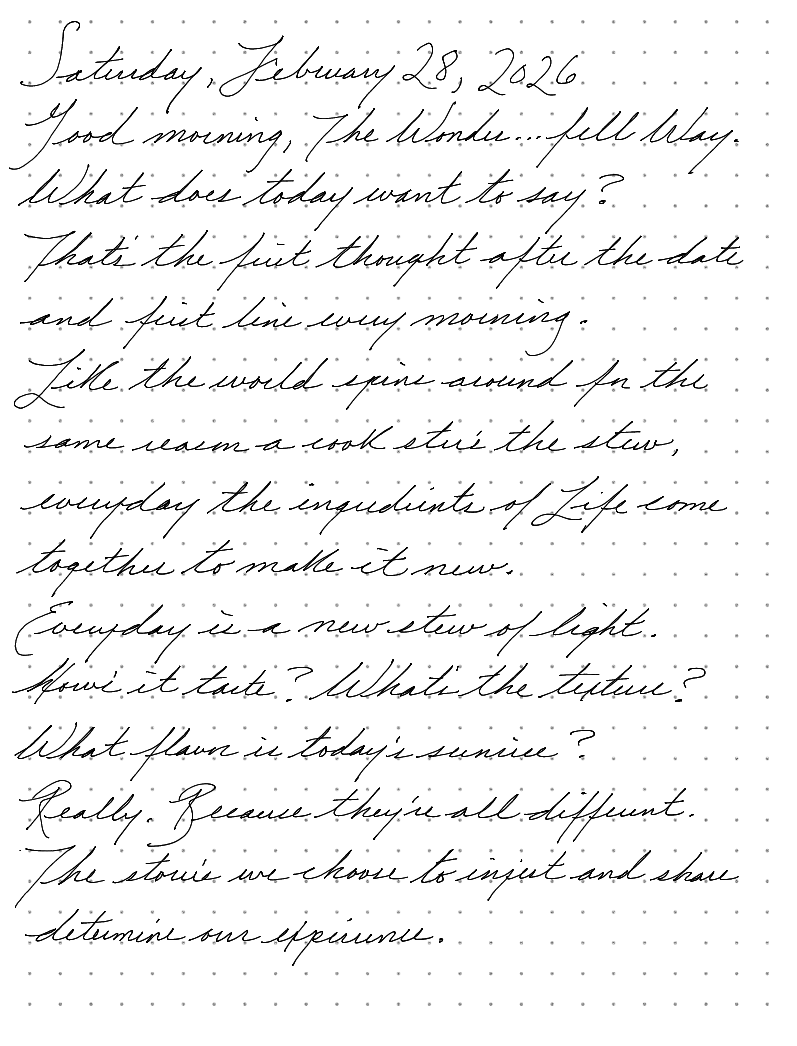 Saturday, February 28, 2026
Good morning, The Wonder...fell Way.
What does today want to say?
That's the first thought after the date
and first line every morning.
Like the world spins around for the
same reason a cook stirs the stew,
everyday the ingredients of Life come
together to make it new.
Everyday is a new stew of light.
How's it taste? What's the texture?
What flavor is today's sunrise?
Really. Because they're all different.
The stories we choose to inject and share
determine our experience.